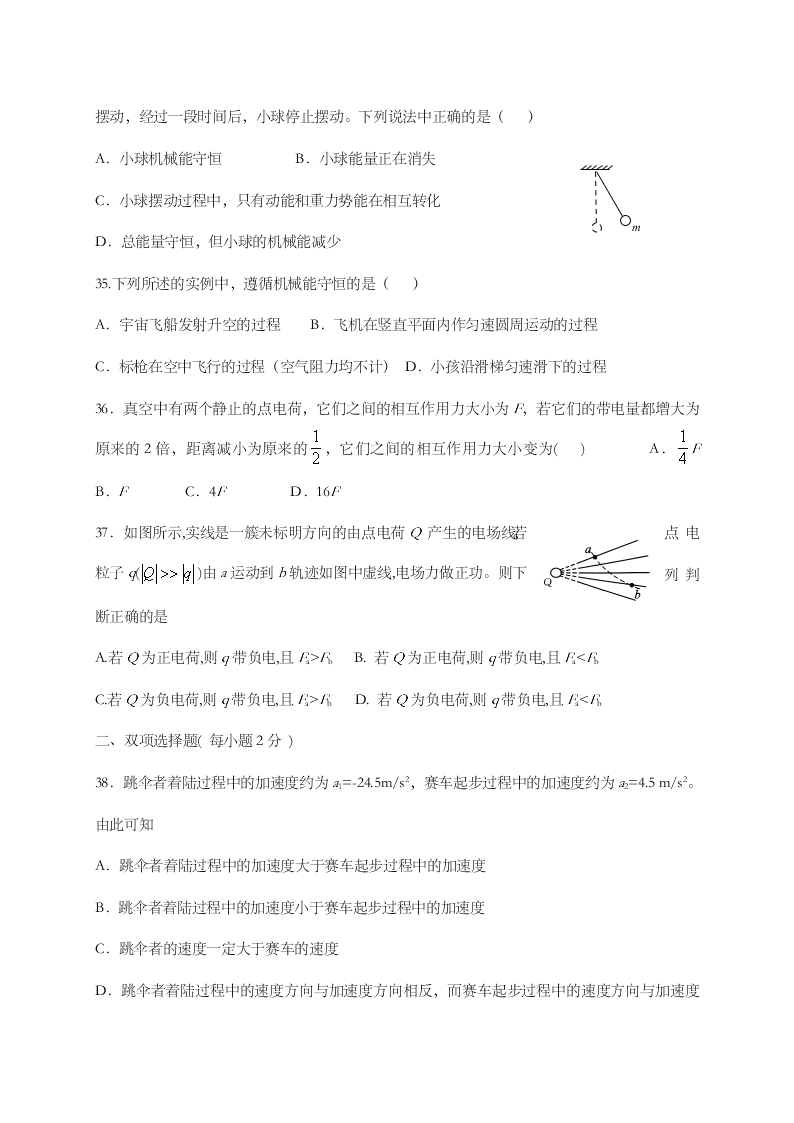 摆动，经过一段时间后，小球停止摆动。下列说法中正确的是（ ）
A．小球机械能守恒 B．小球能量正在消失
C．小球摆动过程中，只有动能和重力势能在相互转化
m
D．总能量守恒，但小球的机械能减少
35.下列所述的实例中，遵循机械能守恒的是（ ）
A．宇宙飞船发射升空的过程 B．飞机在竖直平面内作匀速圆周运动的过程
C．标枪在空中飞行的过程（空气阻力均不计） D．小孩沿滑梯匀速滑下的过程
36．真空中有两个静止的点电荷，它们之间的相互作用力大小为 F，若它们的带电量都增大为
原来的 2 倍，距离减小为原来的 1/2，它们之间的相互作用力大小变为( ) A．1/4 F
B．F C．4F D．16F
37．如图所示,实线是一簇未标明方向的由点电荷 Q 产生的电场线,若 点 电
粒子 q(|Q|>>|q|)由 a 运动到 b 轨迹如图中虚线,电场力做正功。则下 列 判
a
Q
b
断正确的是
A.若 Q 为正电荷,则 q 带负电,且 Fa>Fb B. 若 Q 为正电荷,则 q 带负电,且 Fa<Fb
C.若 Q 为负电荷,则 q 带负电,且 Fa>Fb D. 若 Q 为负电荷,则 q 带负电,且 Fa<Fb
二、双项选择题( 每小题 2 分 )
38．跳伞者着陆过程中的加速度约为 a₁=-24.5m/s²，赛车起步过程中的加速度约为 a₂=4.5 m/s²。
由此可知
A．跳伞者着陆过程中的加速度大于赛车起步过程中的加速度
B．跳伞者着陆过程中的加速度小于赛车起步过程中的加速度
C．跳伞者的速度一定大于赛车的速度
D．跳伞者着陆过程中的速度方向与加速度方向相反，而赛车起步过程中的速度方向与加速度